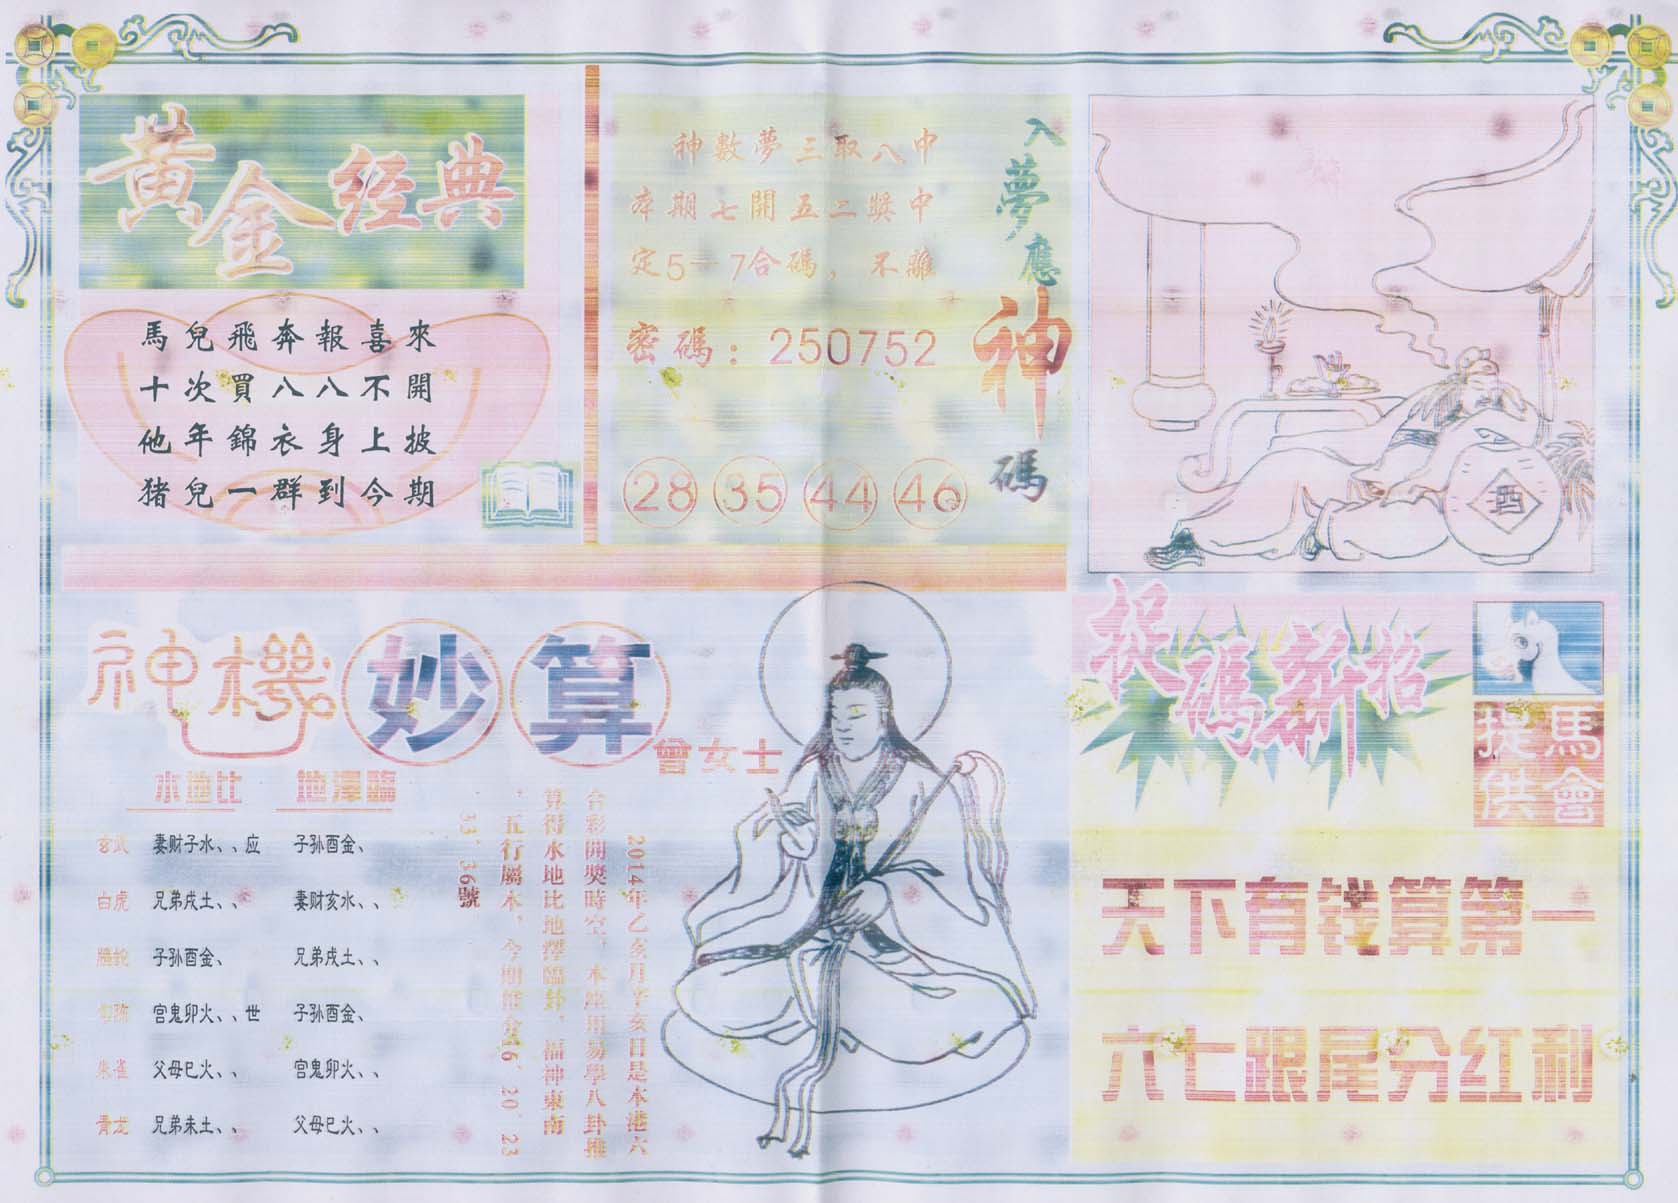 黄金经典
馬兒飛奔報喜來
十次買八八不開
他年錦衣身上披
猪兒一群到今期
神數夢三取八中
本期七開五二獎中
定5－7合碼，不離
密碼：250752
28 35 44 46
入夢應神碼
酉
神機妙算
曾女士
水地比 地澤臨
玄武 妻财子水、、应 子孙酉金、
白虎 兄弟戌土、、 妻财亥水、、
螣蛇 子孙酉金、 兄弟戌土、、
勾陈 官鬼卯火、、世 子孙酉金、
朱雀 父母巳火、、 官鬼卯火、、
青龙 兄弟未土、、 父母巳火、、
2014年乙亥月辛亥日是本港六
合彩開獎時空，本 用易學八卦推
算得水地比地澤臨卦，福神東南
，五行屬木，今期 16，20，23
33，36號
捉碼新招
馬會
提供
天下有钱算第一
六七跟尾分红利